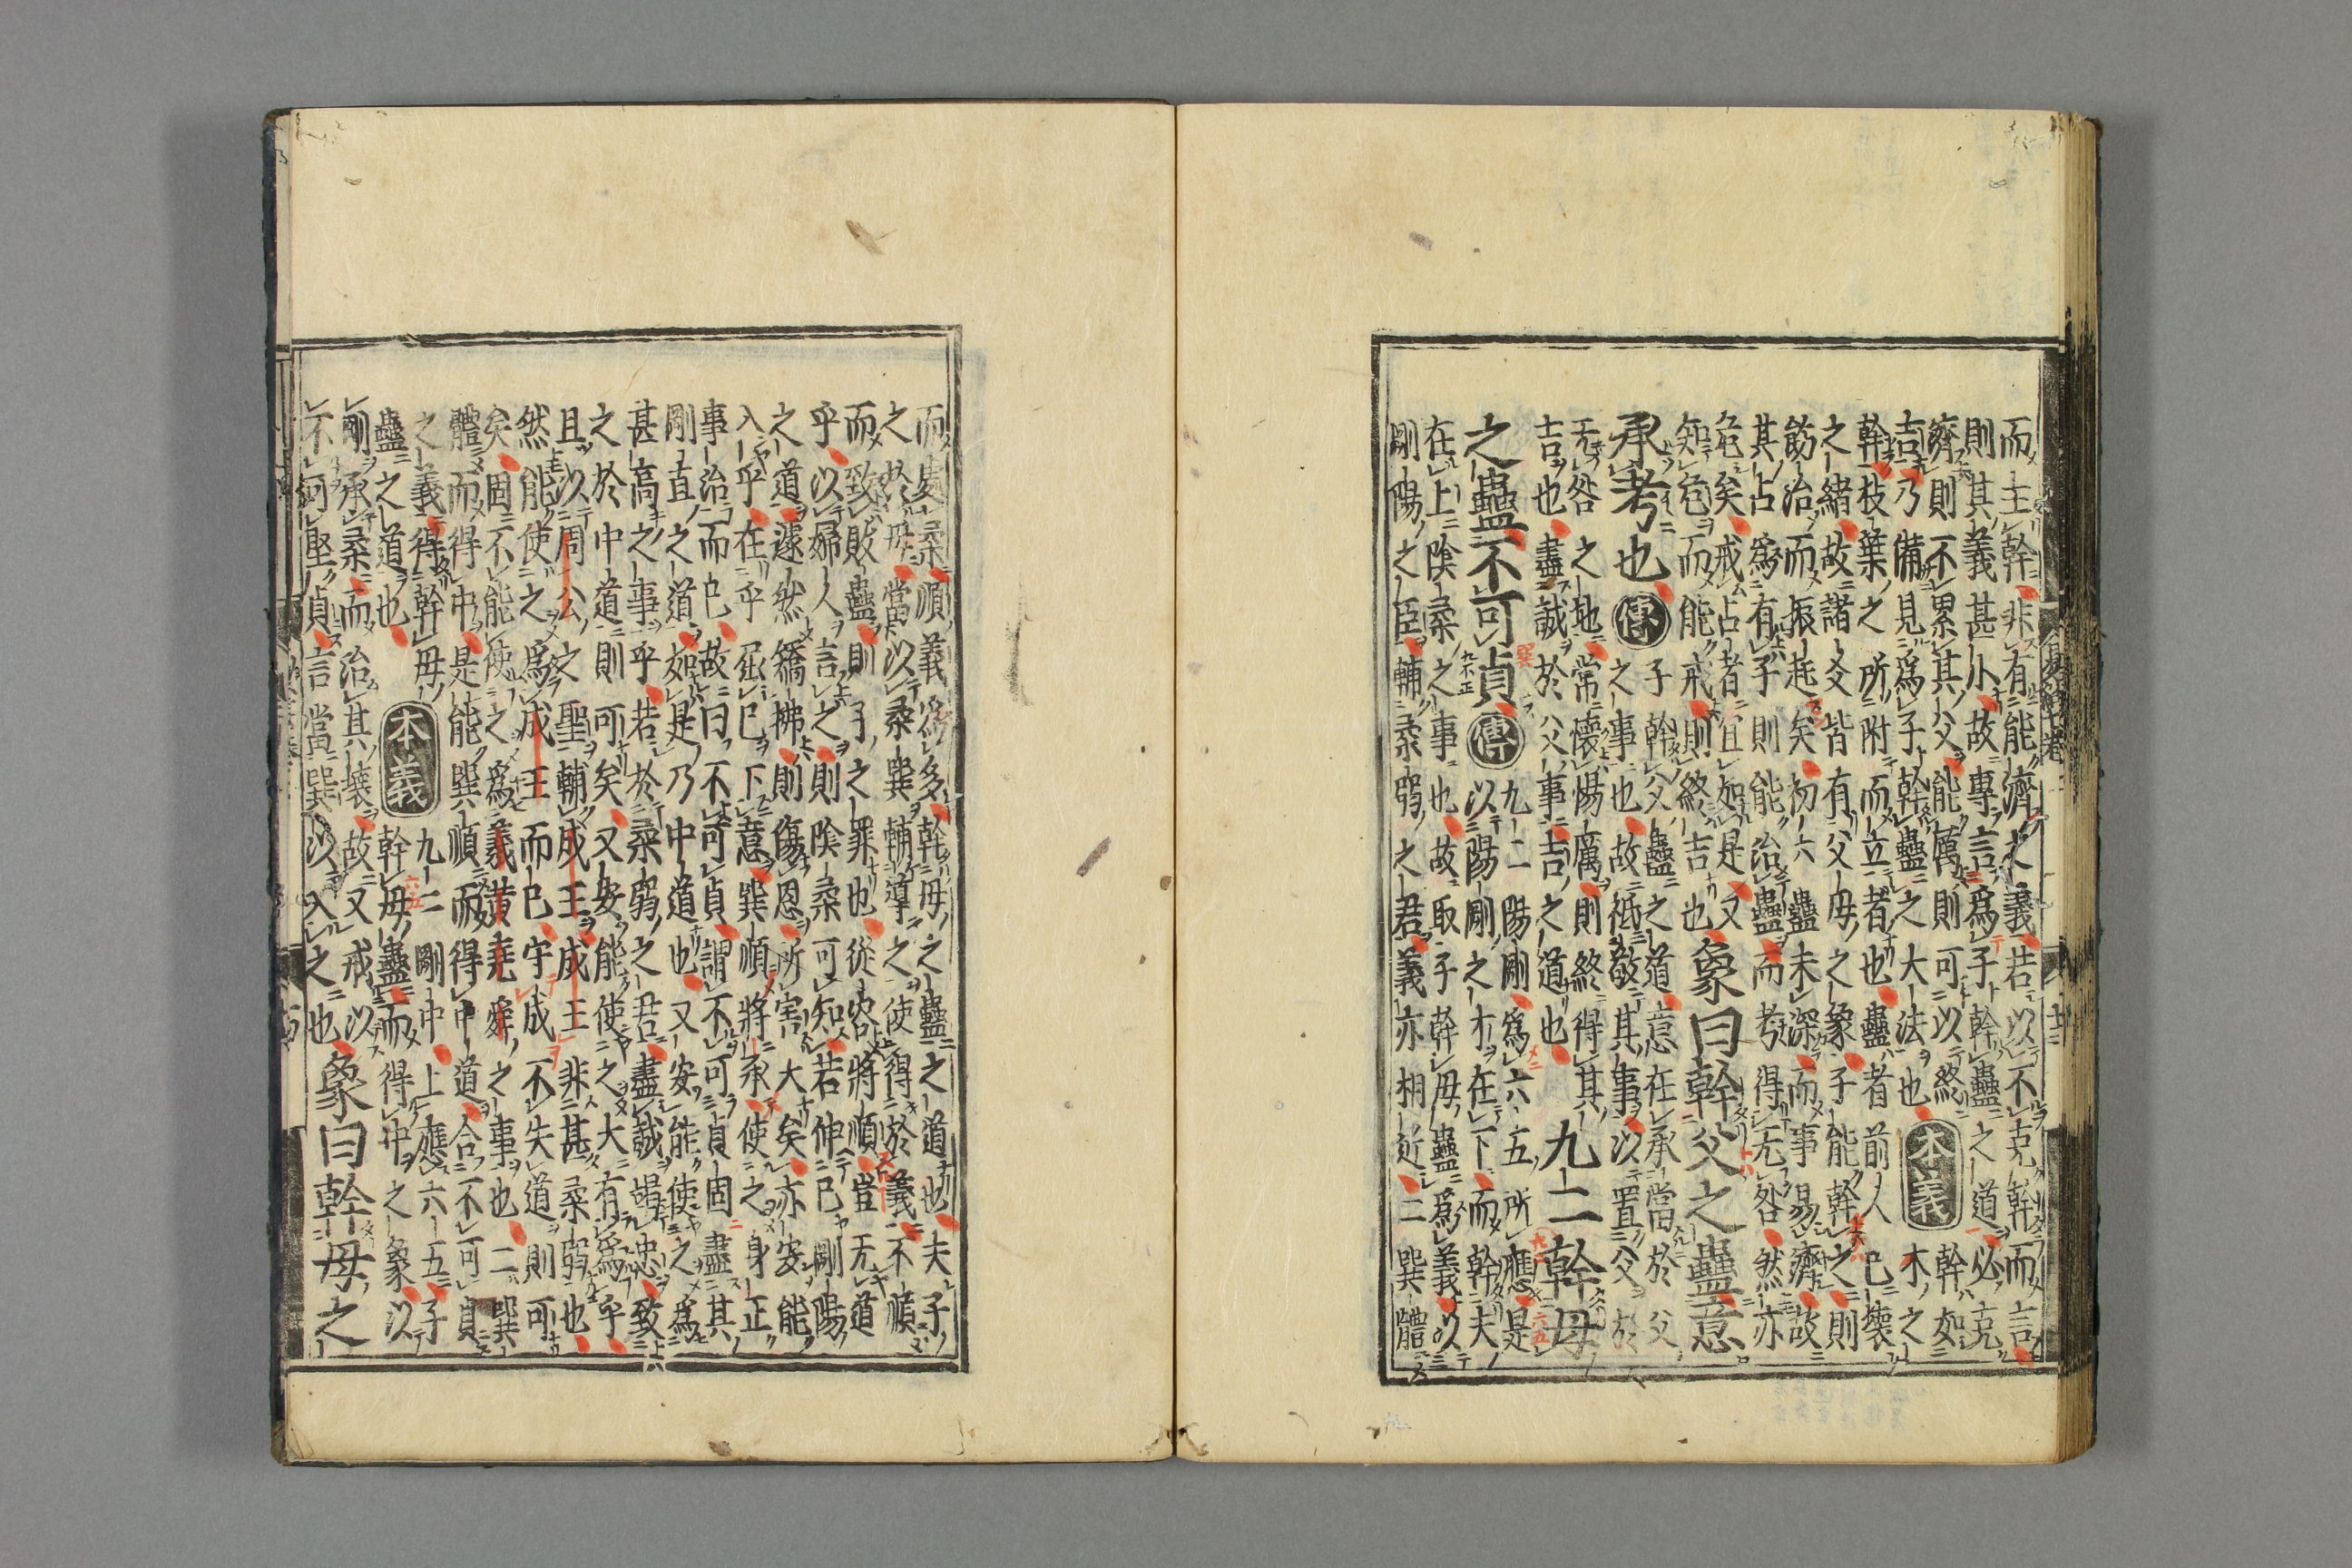 而主幹非有能濟之義若以不克幹而言
則其義甚小故專言爲子幹蠱之道必克
濟則不累其父能厲則可以終
吉乃備見爲子幹蠱之大法也本義幹如木之
幹枝葉之所附而立者也蠱者前人已壞
之緒故諸爻皆有父母之象子能幹之則
飭治而振起矣初六蠱未深而事易濟故
其占爲有子則能治蠱而考得无咎然亦
危矣戒占者宜如是又
知危而能戒則終吉也象曰幹父之蠱意
承考也傳子幹父蠱之道意在承當於父
之事也故祗敬其事以置父於
无咎之地常懷惕厲則終得其
吉也盡誠於父事吉之道也九二幹母
之蠱不可貞傳九二陽剛爲六五所應是
以陽剛之才在下而幹夫
在上陰柔之事也故取子幹母蠱爲義以
剛陽之臣輔柔弱之君義亦相近二巽體
而處柔順義爲多幹母之蠱之道也夫子
之於母當以柔巽輔導之使得於義不順
而致敗蠱則子之罪也從容將順豈无道
乎以婦人言之則陰柔可知若伸已剛陽
之道遽然矯拂則傷恩所害大矣亦安能
入乎在乎屈已下意巽順將承使之身正
事治而已故曰不可貞謂不可貞固盡其
剛直之道如是乃中道也又安能使之爲
甚高之事乎若於柔弱之君盡誠竭忠致
之於中道則可矣又安能使之大有爲乎
且以周公之聖輔成王成王非甚柔弱也
然能使之爲成王而已守成不失道則可
矣固不能使之爲羲黃堯舜之事也二巽
體而得中是能巽順而得中道合不可貞
之義得幹母
蠱之道也本義九二剛中上應六五子
幹母蠱而得中之象以
剛承柔而治其壞故又戒以
不可堅貞言當巽以入之也象曰幹母之